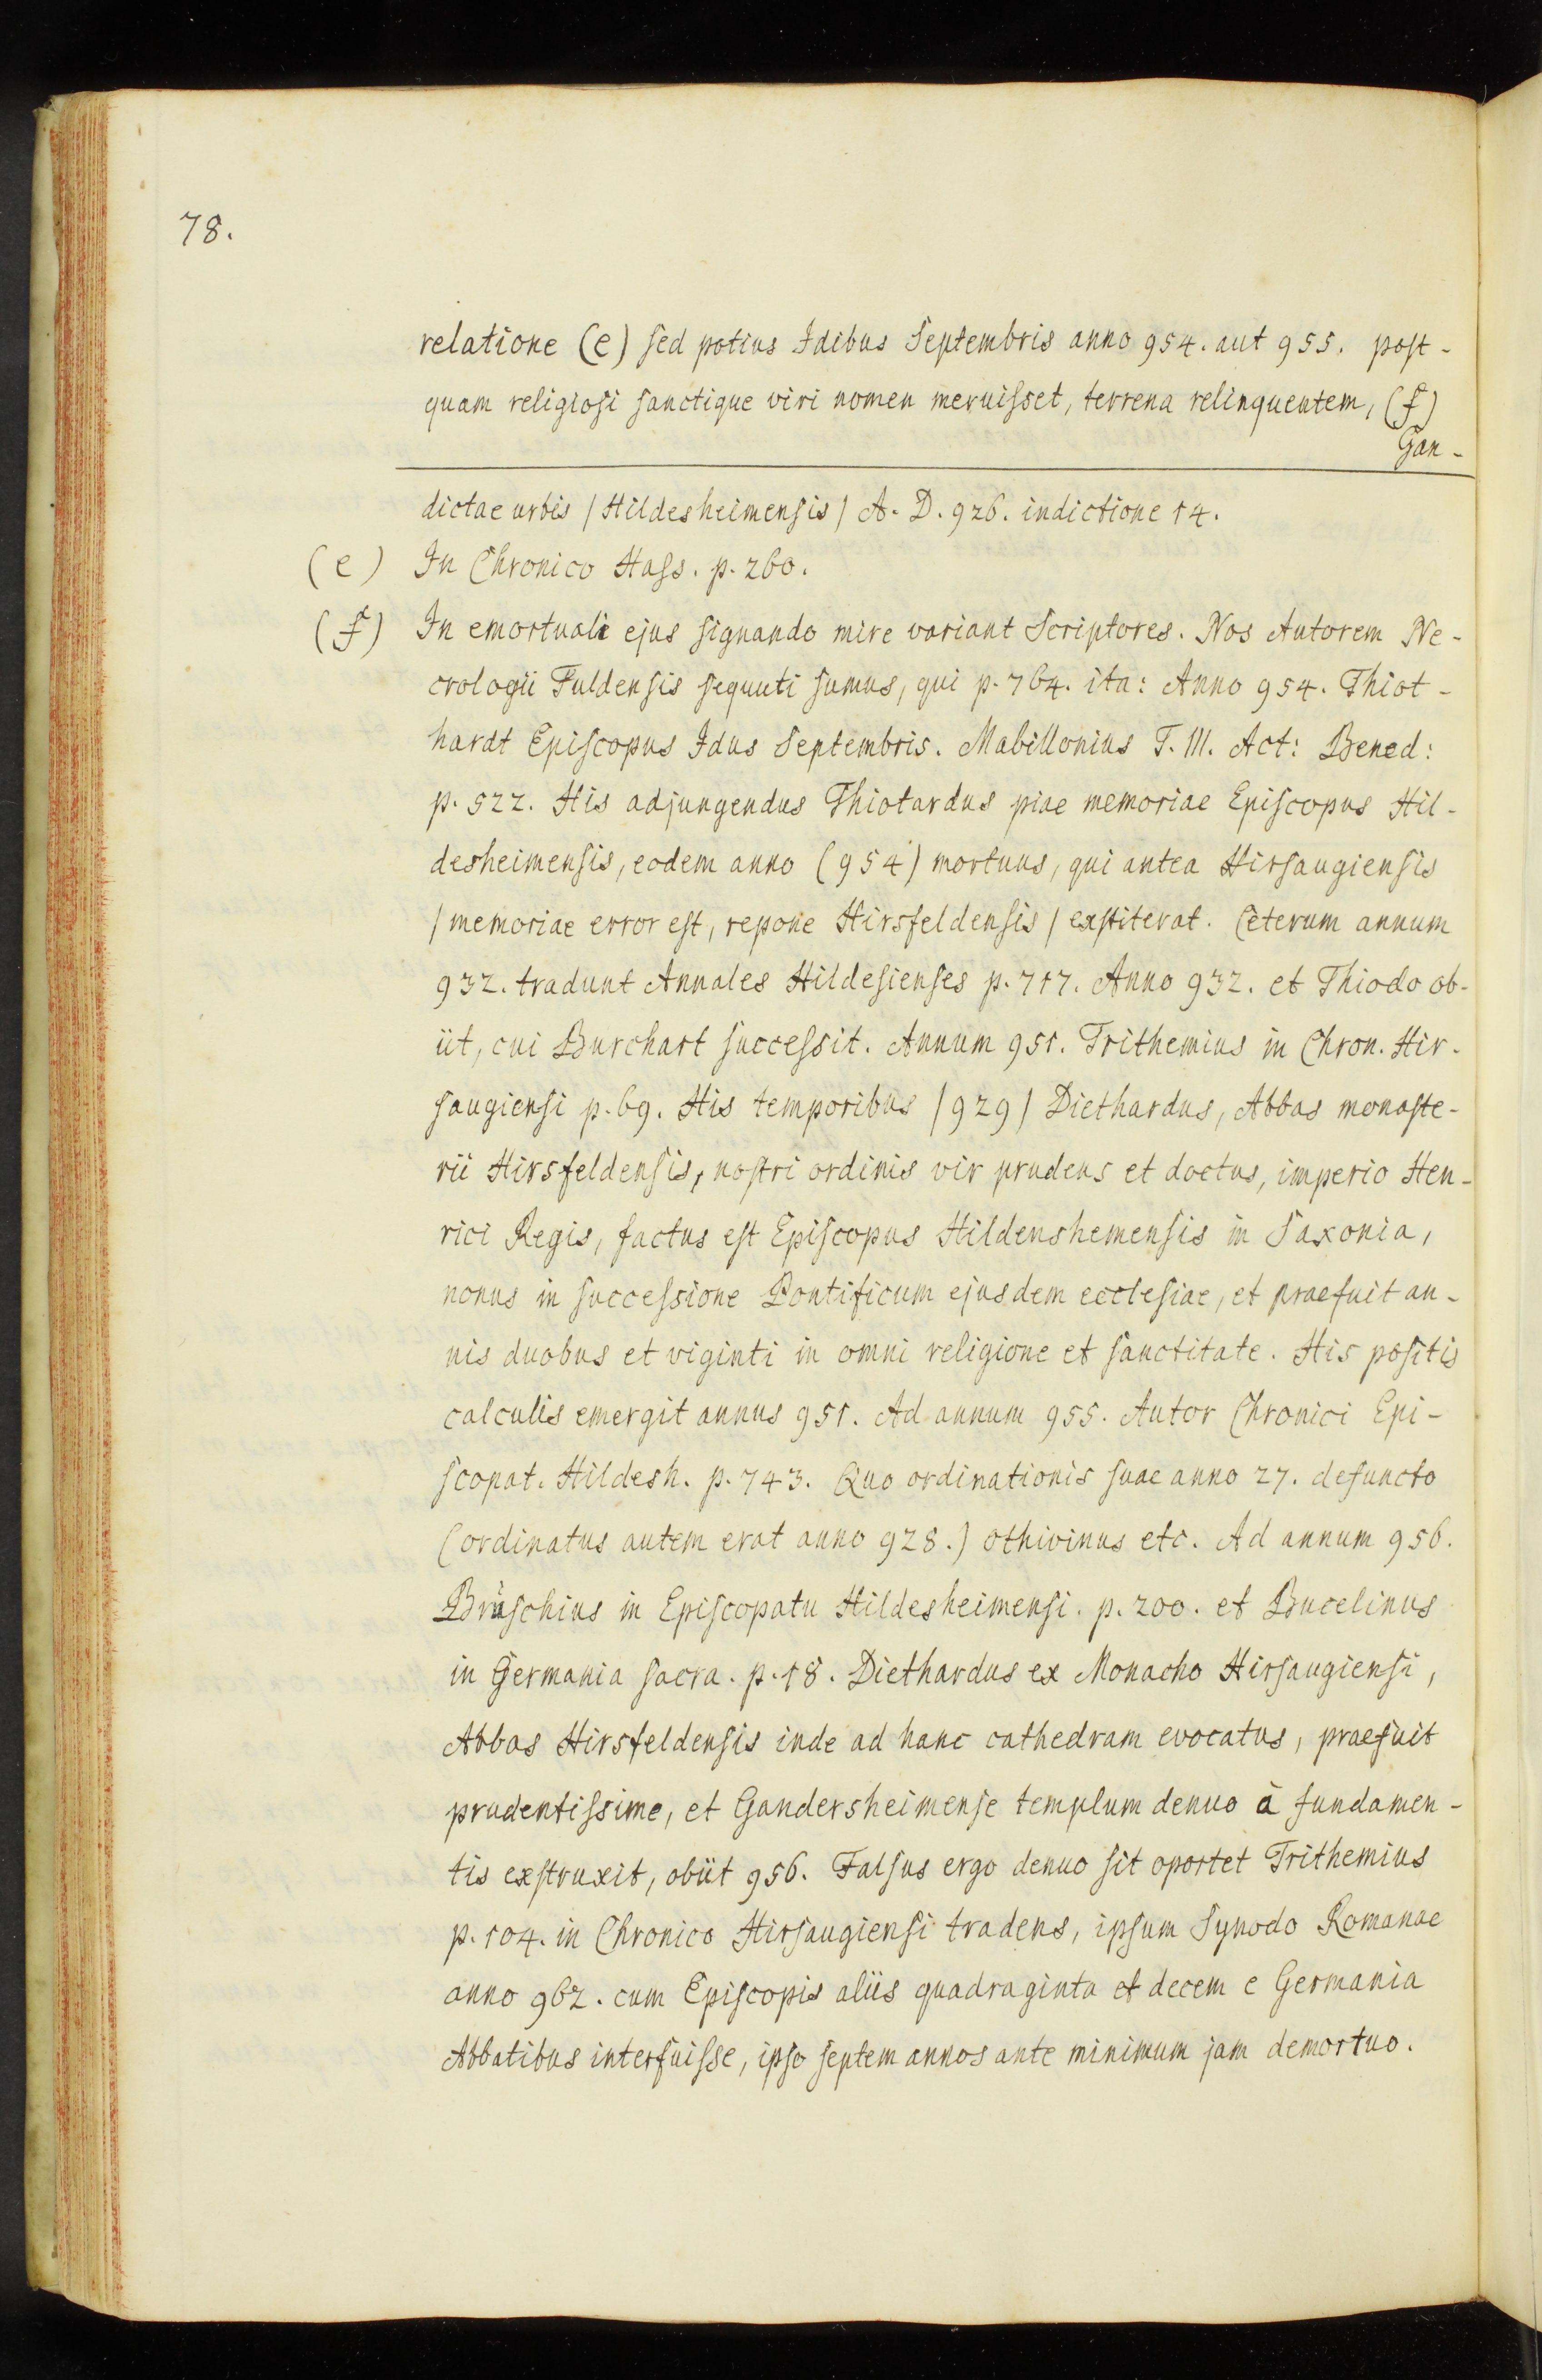 78.
relatione (e) sed potius Idibus Septembris anno 954. aut 955. post-
quam religiosi sanctique viri nomen meruisset, terrena relinquentem, (f)
Gan-
dictae urbis / Hildesheimensis / A. D. 926. indictione 14.
(e) In Chronico Hass. p. 260.
(f) In emortuali ejus signando mire variant Scriptores. Nos Autorem Ne-
crologii Fuldensis sequuti sumus, qui p. 764. ita: Anno 954. Thiot-
hardt Episcopus Idus Septembris. Mabillonius T. III. Act: Bened:
p. 522. His adjungendus Thiotardus piae memoriae Episcopus Hil-
desheimensis, eodem anno (954) mortuus, qui antea Hirsaugiensis
/ memoriae error est, repone Hirsfeldensis / exstiterat. Ceterum annum
932. tradunt Annales Hildesienses p. 717. Anno 932. et Thiodo ob-
iit, cui Burchart successit. Annum 951. Trithemius in Chron. Hir-
saugiensi p. 69. His temporibus / 929 / Diethardus, Abbas monaste-
rii Hirsfeldensis, nostri ordinis vir prudens et doctus, imperio Hen-
rici Regis, factus est Episcopus Hildenshemensis in Saxonia,
nonus in successione Pontificum ejusdem ecclesiae, et praefuit an-
nis duobus et viginti in omni religione et sanctitate. His positis
calculis emergit annus 951. Ad annum 955. Autor Chronici Epi-
scopat. Hildesh. p. 743. Quo ordinationis suae anno 27. defuncto
(ordinatus autem erat anno 928.) othivinus etc. Ad annum 956.
Brüschius in Episcopatu Hildesheimensi. p. 200. et Bucelinus
in Germania sacra. p. 18. Diethardus ex Monacho Hirsaugiensi,
Abbas Hirsfeldensis inde ad hanc cathedram evocatus, praefuit
prudentissime, et Gandersheimense templum denuo à fundamen-
tis exstruxit, obiit 956. Falsus ergo denuo sit oportet Trithemius
p. 104. in Chronico Hirsaugiensi tradens, ipsum Synodo Romanae
anno 962. cum Episcopis aliis quadraginta et decem e Germania
Abbatibus interfuisse, ipso septem annos ante minimum jam demortuo.